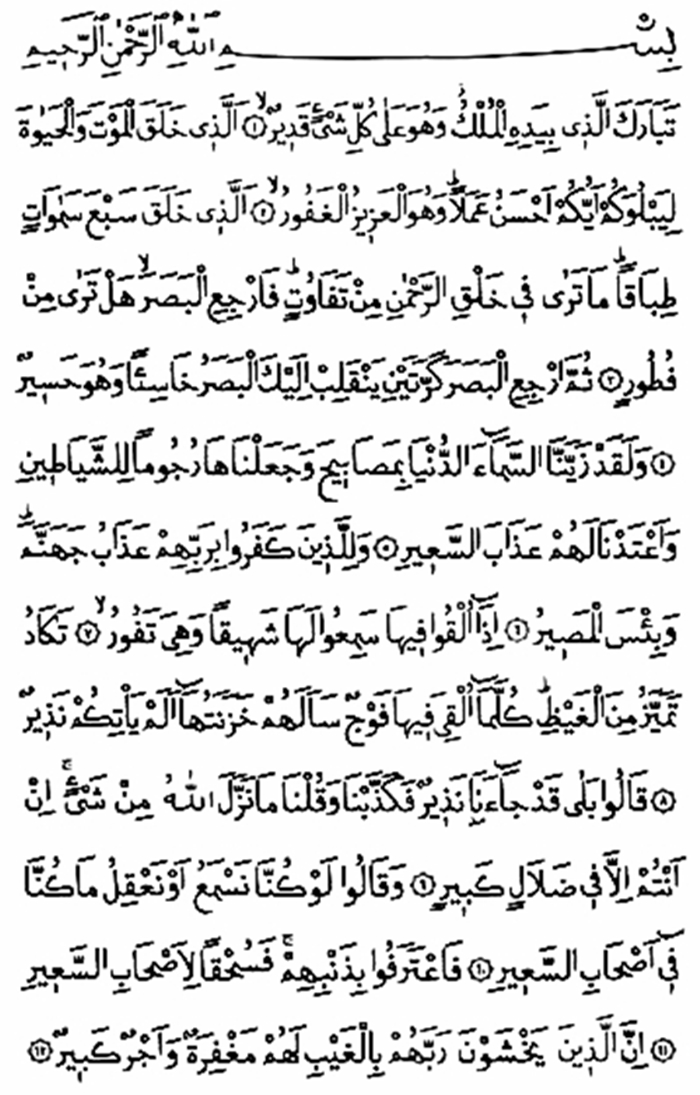 بِسْمِ اللهِ الرَّحْمٰنِ الرَّحِيمِ
تَبَارَكَ الَّذِى بِيَدِهِ الْمُلْكُۘ وَهُوَ عَلٰى كُلِّ شَىْءٍ قَدِيرٌۙ ﴿١﴾ اَلَّذِى خَلَقَ الْمَوْتَ وَالْحَيٰوةَ
لِيَبْلُوَكُمْ اَيُّكُمْ اَحْسَنُ عَمَلاًۜ وَهُوَ الْعَزِيزُ الْغَفُورُۙ ﴿٢﴾ اَلَّذِى خَلَقَ سَبْعَ سَمٰوَاتٍ
طِبَاقاًۜ مَا تَرٰى فِى خَلْقِ الرَّحْمٰنِ مِنْ تَفَاوُتٍۜ فَارْجِعِ الْبَصَرَۙ هَلْ تَرٰى مِنْ
فُطُورٍ ﴿٣﴾ ثُمَّ ارْجِعِ الْبَصَرَ كَرَّتَيْنِ يَنْقَلِبْ اِلَيْكَ الْبَصَرُ خَاسِئاً وَهُوَ حَسِيرٌ
﴿٤﴾ وَلَقَدْ زَيَّنَّا السَّمَٓاءَ الدُّنْيَا بِمَصَابِيحَ وَجَعَلْنَاهَا رُجُوماً لِلشَّيَاطِينِ
وَاَعْتَدْنَا لَهُمْ عَذَابَ السَّعِيرِ ﴿٥﴾ وَلِلَّذِينَ كَفَرُوا بِرَبِّهِمْ عَذَابُ جَهَنَّمَۜ
وَبِئْسَ الْمَصِيرُ ﴿٦﴾ اِذَٓا اُلْقُوا فِيهَا سَمِعُوا لَهَا شَهِيقاً وَهِىَ تَفُورُۙ ﴿٧﴾ تَكَادُ
تَمَيَّزُ مِنَ الْغَيْظِۜ كُلَّمَٓا اُلْقِىَ فِيهَا فَوْجٌ سَاَلَهُمْ خَزَنَتُهَٓا اَلَمْ يَأْتِكُمْ نَذِيرٌ
﴿٨﴾ قَالُوا بَلٰى قَدْ جَٓاءَنَا نَذِيرٌ فَكَذَّبْنَا وَقُلْنَا مَا نَزَّلَ اللهُ مِنْ شَىْءٍۚ اِنْ
اَنْتُمْ اِلَّا فِى ضَلَالٍ كَبِيرٍ ﴿٩﴾ وَقَالُوا لَوْ كُنَّا نَسْمَعُ اَوْ نَعْقِلُ مَا كُنَّا
فِٓى اَصْحَابِ السَّعِيرِ ﴿١٠﴾ فَاعْتَرَفُوا بِذَنْبِهِمْۚ فَسُحْقاً لِاَصْحَابِ السَّعِيرِ
﴿١١﴾ اِنَّ الَّذِينَ يَخْشَوْنَ رَبَّهُمْ بِالْغَيْبِ لَهُمْ مَغْفِرَةٌ وَاَجْرٌ كَبِيرٌ ﴿١٢﴾